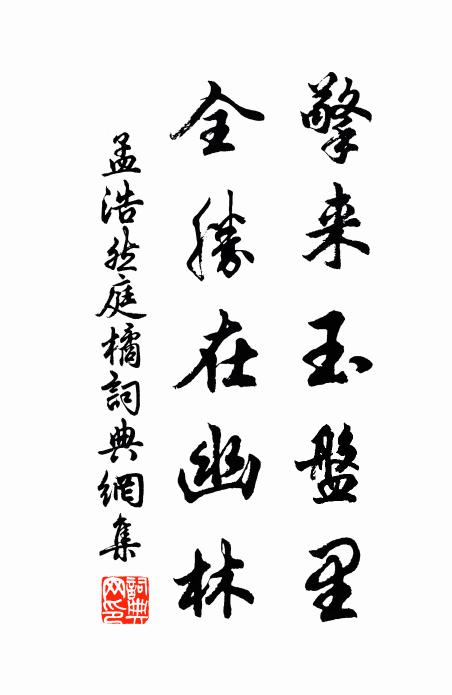 擎来玉盤里
全勝在幽林
孟浩然庭橘詞典網集
詞典網印